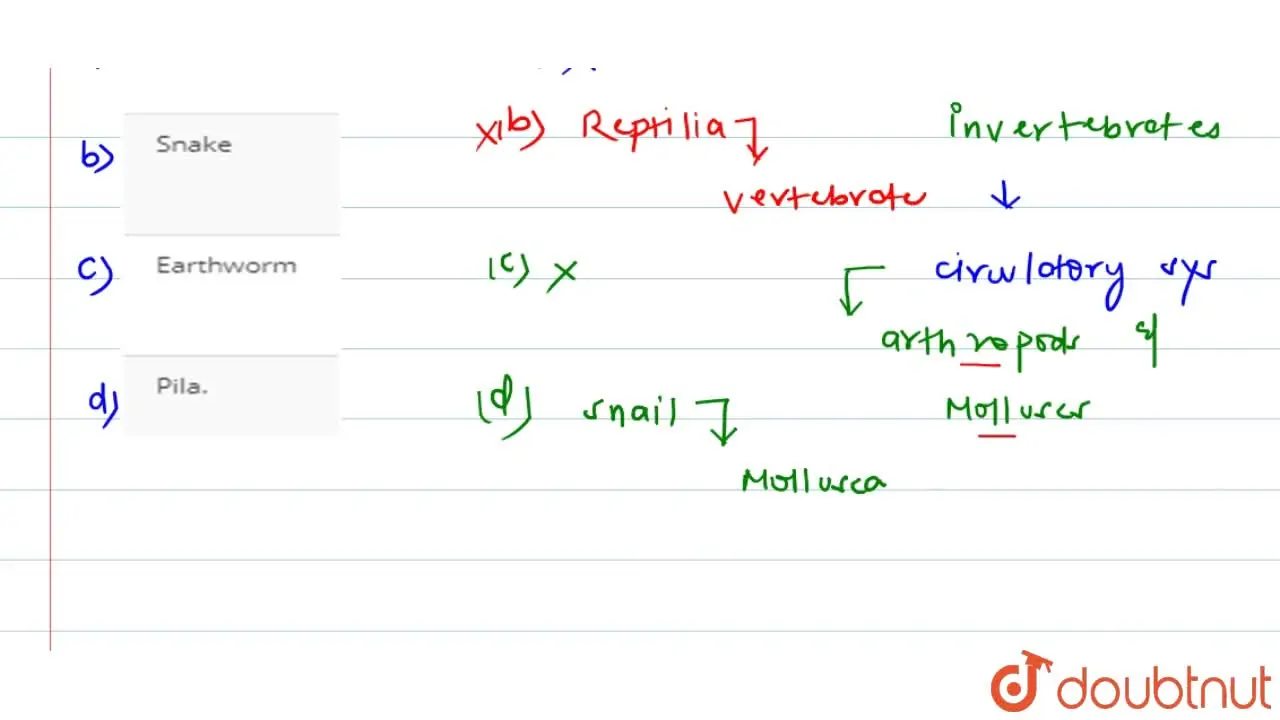 x(b) Reptilia
invertebrates
b) Snake
vertebrate
c) Earthworm
(c) x
circulatory sys
arthropods &
d) Pila.
(d) snail
Molluscs
Mollusca
doubtnut